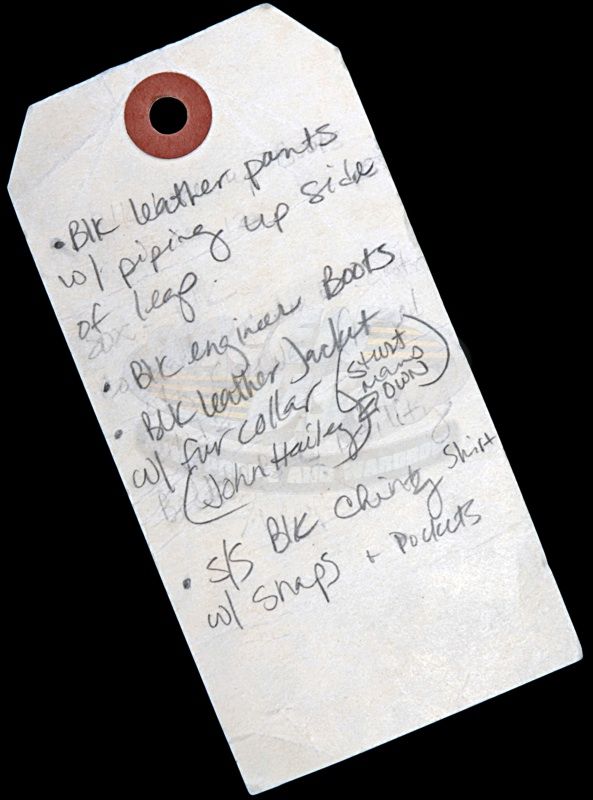 • Blk leather pants
w/ piping up side
of leg.
• Blk engineer Boots
• Blk leather Jacket
w/ fur collar (Stunt
mans
OWN)
(John Hailey)
• S/S Blk Chintz Shirt
w/ snaps + Pockets